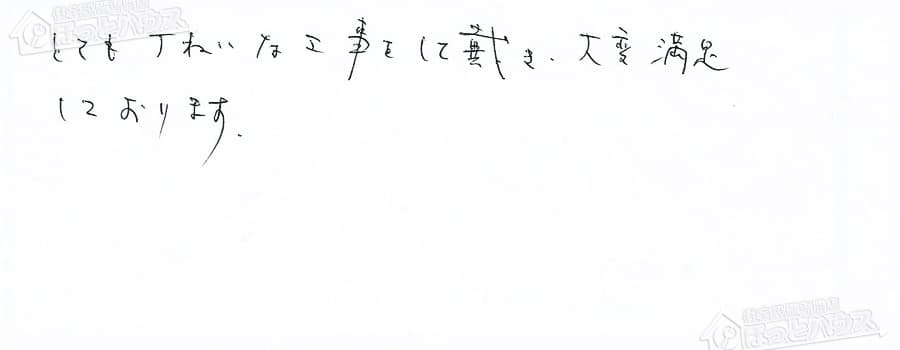 ほっとハウス
とても丁ねいな工事をして戴き、大変満足
しております.
ほっとハウス